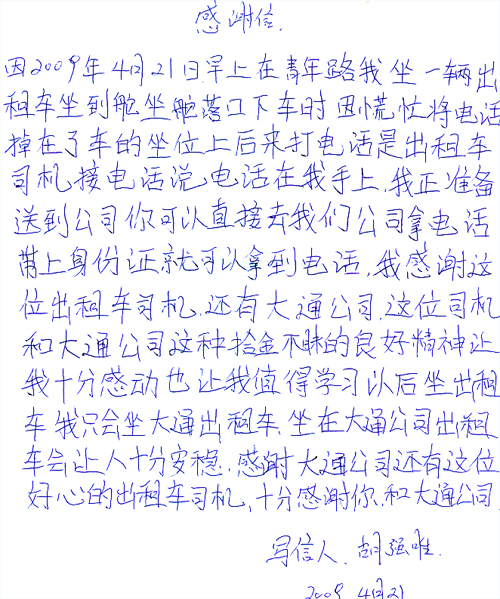 感谢信.
因2009年4月21日早上在青年路我坐一辆出
租车坐到舵坐舵落口下车时因慌忙将电话
掉在了车的坐位上后来打电话是出租车
司机接电话说电话在我手上.我正准备
送到公司你可以直接去我们公司拿电话
带上身份证就可以拿到电话.我感谢这
位出租车司机.还有大通公司.这位司机
和大通公司这种拾金不昧的良好精神让
我十分感动也让我值得学习以后坐出租
车我只会坐大通出租车.坐在大通公司出租
车会让人十分安稳.感谢大通公司还有这位
好心的出租车司机.十分感谢你.和大通公司
写信人.胡强唯.
2009 4月21